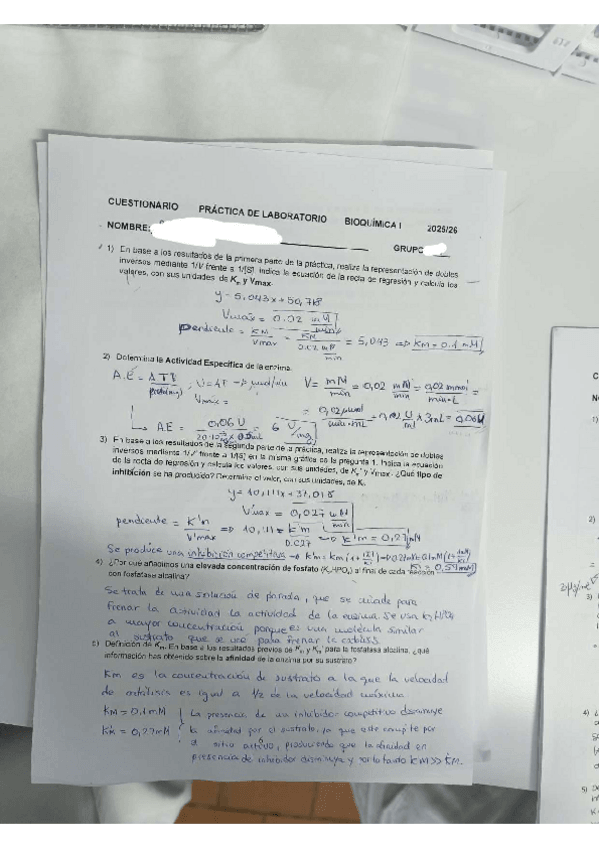 CUESTIONARIO PRÁCTICA DE LABORATORIO BIOQUÍMICA I 2025/26
NOMBRE:
GRUPO
1) En base a los resultados de la primera parte de la práctica, realiza la representación de dobles
inversos mediante 1/V frente a 1/[S]. Indica la ecuación de la recta de regresión y calcula los
valores, con sus unidades de Km y Vmax.
y = 5,043x + 50,768
Vmax = 0.02 mM/min
pendiente = KM/Vmax = KM/0.02 mM/min = 5,043 => KM = 0.1 mM
2) Determina la Actividad Específica de la enzima.
A.E = ; V = mM/min = 0,02 mM/min = 0,02 mmol/min·L =
Vmax = = 0,02 µmol/min·mL = 0,02 U/ml x 3mL = 0,06U
AE = 0,06 U = 6 U/mg
3) En base a los resultados de la segunda parte de la práctica, realiza la representación de dobles
inversos mediante 1/V frente a 1/[S] en la misma gráfica de la pregunta 1. Indica la ecuación
de la recta de regresión y calcula los valores, con sus unidades, de Km' y Vmax. ¿Qué tipo de
inhibición se ha producido? Determina el valor, con sus unidades, de Ki.
y = 10,111x + 37,018
V'max = 0,027 mM/min
pendiente = K'm/V'max => 10,11 = K'm/0.027 => K'm = 0,27mM
Se produce una inhibición competitiva
4) ¿Por qué añadimos una elevada concentración de fosfato (K2HPO4) al final de cada reacción
con fosfatasa alcalina?
Se trata de una solución de parada, que se añade para
frenar la actividad la actividad de la enzima. Se usa K2HPO4
a mayor concentración porque es una molécula similar
al sustrato que se usa para frenar la
5) Definición de Km. En base a los resultados previos de Km y Km' para la fosfatasa alcalina, ¿qué
información has obtenido sobre la afinidad de la enzima por su sustrato?
Km es la concentración de sustrato a la que la velocidad
de catálisis es igual a 1/2 de la velocidad máxima.
KM = 0,1mM La presencia de un inhibidor competitivo disminuye
KM = 0,27mM la afinidad por el sustrato, ya que este compite por
el sitio activo, produciendo que la afinidad en
presencia de inhibidor disminuya y por lo tanto